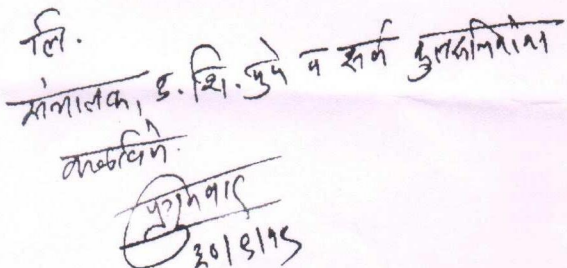 लि.
संचालक, उ. शि. पुणे व सर्व कुलसचिवांना
कळविणे.
३०/९/१८